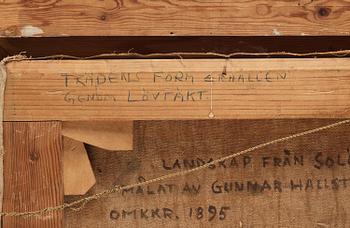 TRÄDENS FORM ERHÅLLEN
GENOM LÖVTÄKT.
LANDSKAP FRÅN SOL
MÅLAT AV GUNNAR HALLST
OMKR. 1895